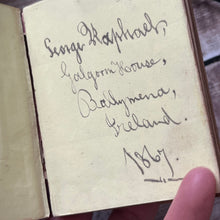 George Raphael,
Galgorm House,
Ballymena,
Ireland.
1867.